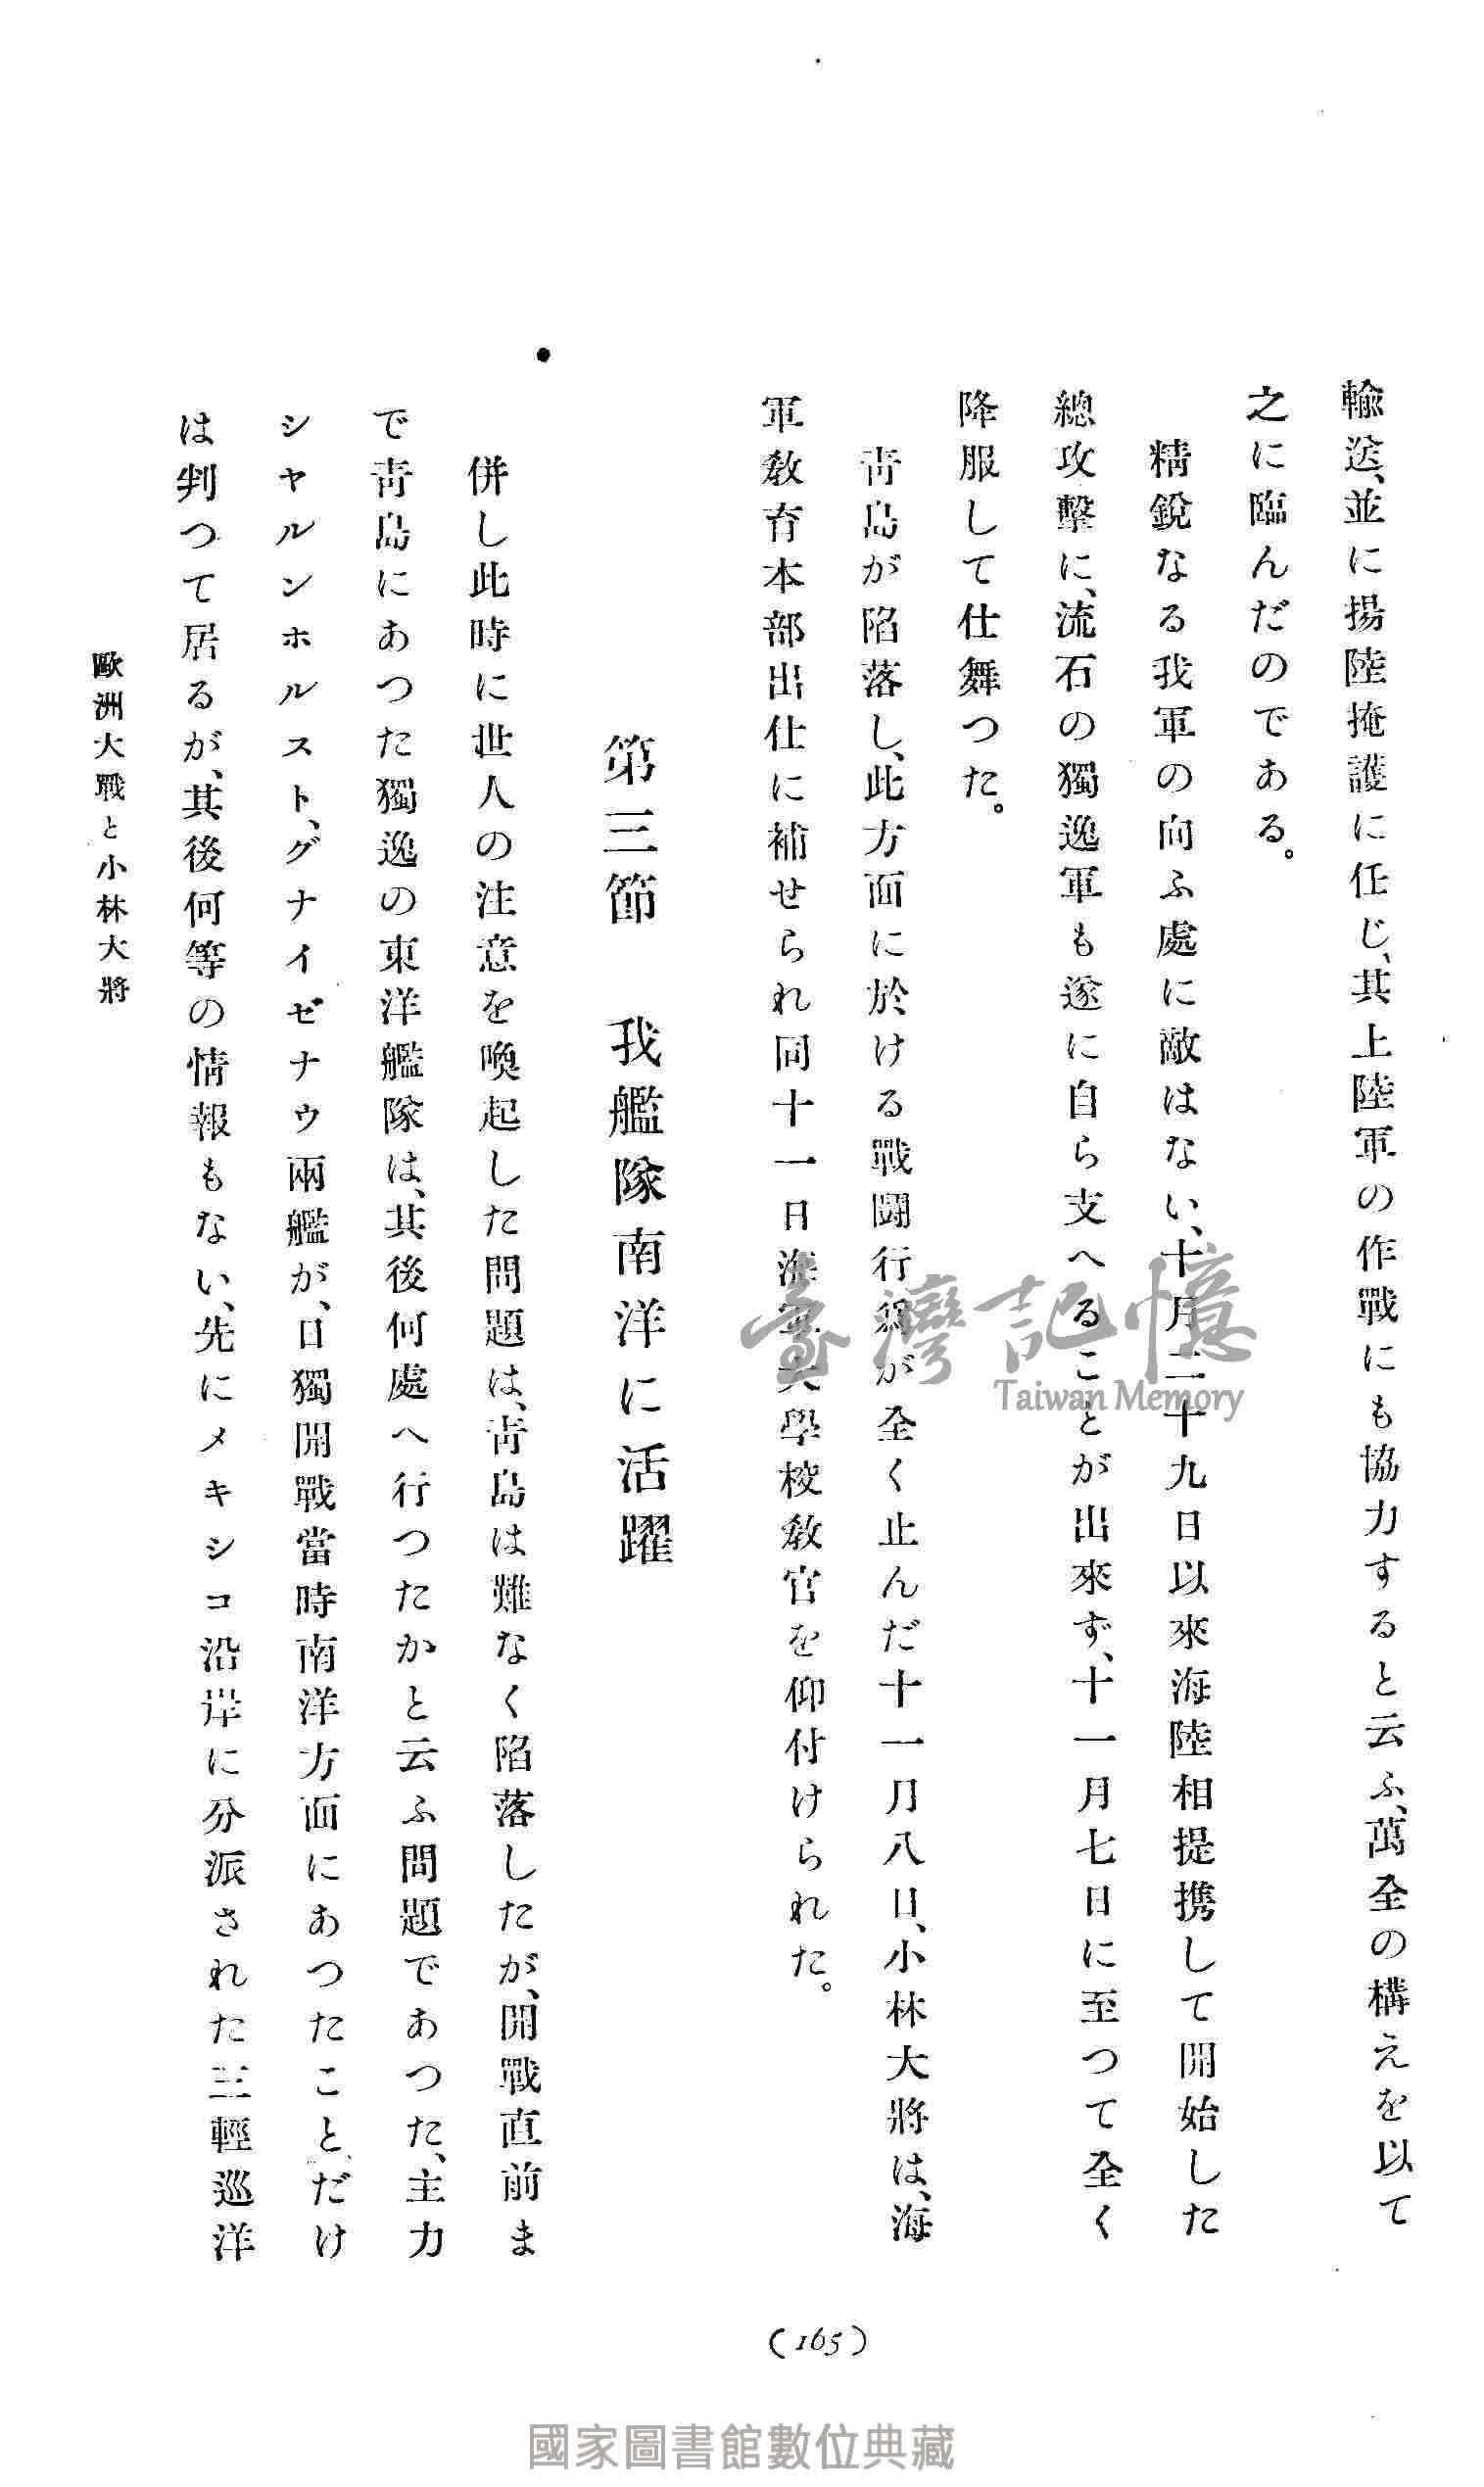 輸送、並に揚陸掩護に任じ、其上陸軍の作戰にも協力すると云ふ、萬全の構えを以て
之に臨んだのである。
精銳なる我軍の向ふ處に敵はない、十月二十九日以來海陸相提携して開始した
總攻擊に、流石の獨逸軍も遂に自ら支へることが出來ず、十一月七日に至つて全く
降服して仕舞つた。
靑島が陷落し、此方面に於ける戰鬪行爲が全く止んだ十一月八日、小林大將は、海
軍敎育本部出仕に補せられ同十一日海軍大學校敎官を仰付けられた。
第三節　我艦隊南洋に活躍
併し此時に世人の注意を喚起した問題は、靑島は難なく陷落したが、開戰直前ま
で靑島にあつた獨逸の東洋艦隊は、其後何處へ行つたかと云ふ問題であつた、主力
シヤルンホルスト、グナイゼナウ兩艦が、日獨開戰當時南洋方面にあつたことだけ
は判つて居るが、其後何等の情報もない、先にメキシコ沿岸に分派された三輕巡洋
歐洲大戰と小林大將
(165)
臺灣記憶
Taiwan Memory
國家圖書館數位典藏